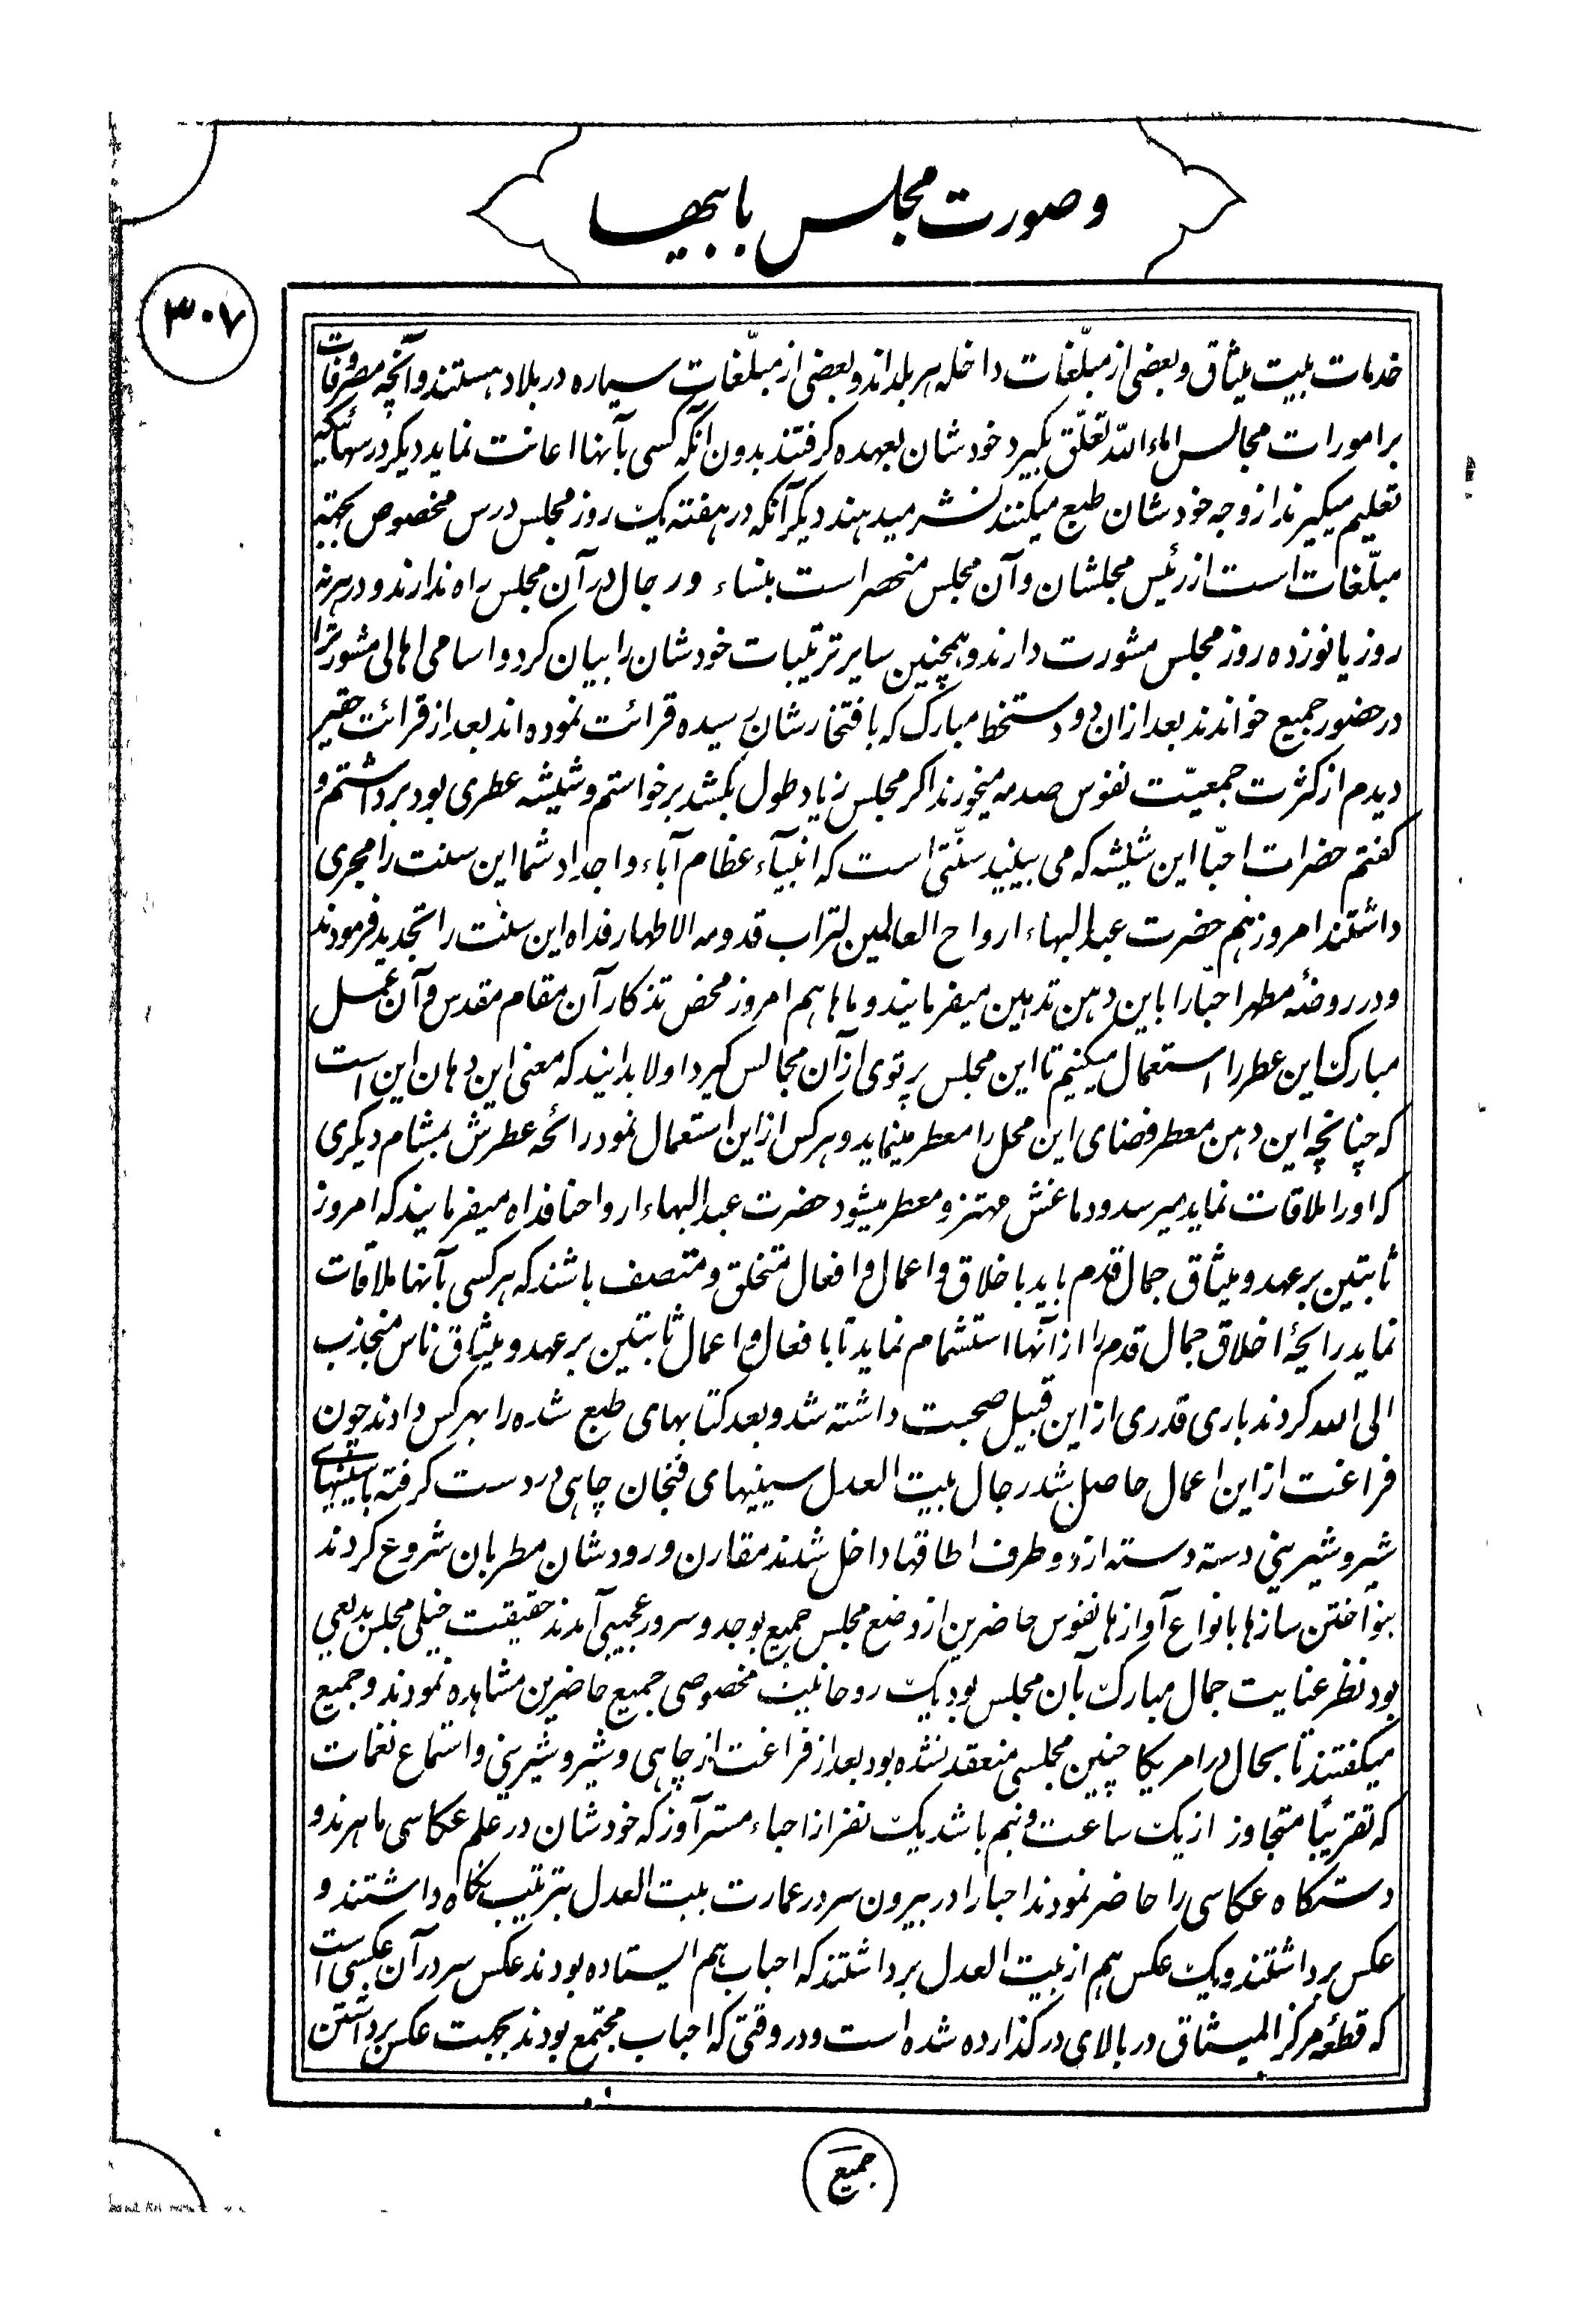 و صورت مجلس با بیها
۳۰۷
خدمات بیت میثاق و بعضی از مبلّغات داخله هر بلداند و بعضی از مبلّغات سیاره در بلاد هستند و آنچه مصروفات
بر امورات مجالس اماء الله تعلّق بگیرد خودشان بعهده گرفتند بدون آنکه کسی بآنها اعانت نماید دیگر درسهائیکه
تعلیم میگیرند از وجه خودشان طبع میکنند نشر میدهند دیگر آنکه در هفته یک روز مجلس درس مخصوص بجهة
مبلّغات است از رئیس مجلشان و آن مجلس منحصر است بنساء و رجال در آن مجلس راه ندارند و در هر نه
روز یا نوزده روز مجلس مشورت دارند و همچنین سایر ترتیبات خودشان را بیان کرد و اسامی اهالی مشورت را
در حضور جمیع خواندند بعد از ان دو دستخط مبارک که بافتخارشان رسیده قرائت نموده اند بعد از قرائت حقیر
دیدم از کثرت جمعیّت نفوس صدمه میخورند اگر مجلس زیاد طول بکشد برخواستم و شیشه عطری بود برداشتم و
گفتم حضرات احبّا این شیشه که می بینید سنّتی است که انبیآء عظام آباء و اجداد شما این سنت را مجری
داشتند امروز هم حضرت عبد البهاء ارواح العالمین لتراب قدومه الاطهار فداه این سنّت را تجدید فرمودند
و در روضهٔ مطهر احبّا را باین دهن تدهین میفرمایند و ماها هم امروز محض تذکار آن مقام مقدس و آن عمل
مبارک این عطر را استعمال میکنیم تا این مجلس پرتوی از آن مجالس گیرد اولا بدانید که معنی این دهان این است
که چنانچه این دهن معطر فضای این محل را معطر مینماید و هر کس از این استعمال نمود رائحه عطرش بمشام دیگری
که او را ملاقات نماید میرسد و دماغش مهتز و معطر میشود حضرت عبد البهاء ارواحنا فداه میفرمایند که امروز
ثابتین بر عهد و میثاق جمال قدم باید باخلاق و اعمال و افعال متخلق و متصف باشند که هر کسی بآنها ملاقات
نماید رایحهٔ اخلاق جمال قدم را از آنها استشمام نماید تا با فعال و اعمال ثابتین بر عهد و میثاق ناس منجذب
الی الله گردند باری قدری از این قبیل صحبت داشته شد و بعد کتابهای طبع شده را بهر کس دادند چون
فراغت از این اعمال حاصل شد رجال بیت العدل سینیهای فنجان چاهی در دست گرفته با سینیهای
شیر و شیرینی دسته دسته از دو طرف اطاقها داخل شدند مقارن ورودشان مطربان شروع کردند
بنواختن سازها بانواع آوازها نفوس حاضرین از وضع مجلس جمیع بوجد و سرور عجیبی آمدند حقیقت خیلی مجلس بدیعی
بود نظر عنایت جمال مبارک بآن مجلس بود یک روحانیت مخصوصی جمیع حاضرین مشاهده نمودند و جمیع
میگفتند تا بحال در امریکا چنین مجلسی منعقد نشده بود بعد از فراغت از چاهی و شیر و شیرینی و استماع نغمات
که تقریبًا متجاوز از یک ساعت و نیم باشد یک نفر از احباء مستر آوز که خودشان در علم عکاسی ماهرند و
دستگاه عکاسی را حاضر نمودند احبا را در بیرون سر در عمارت بیت العدل بترتیب نگاه داشتند و
عکس برداشتند و یک عکس هم از بیت العدل برداشتند که احباب هم ایستاده بودند عکس سر در آن عکسی است
که قطعهٔ مرکز المیثاق در بالای در گذارده شده است و در وقتی که احباب مجتمع بودند بجهت عکس برداشتن
جمیع